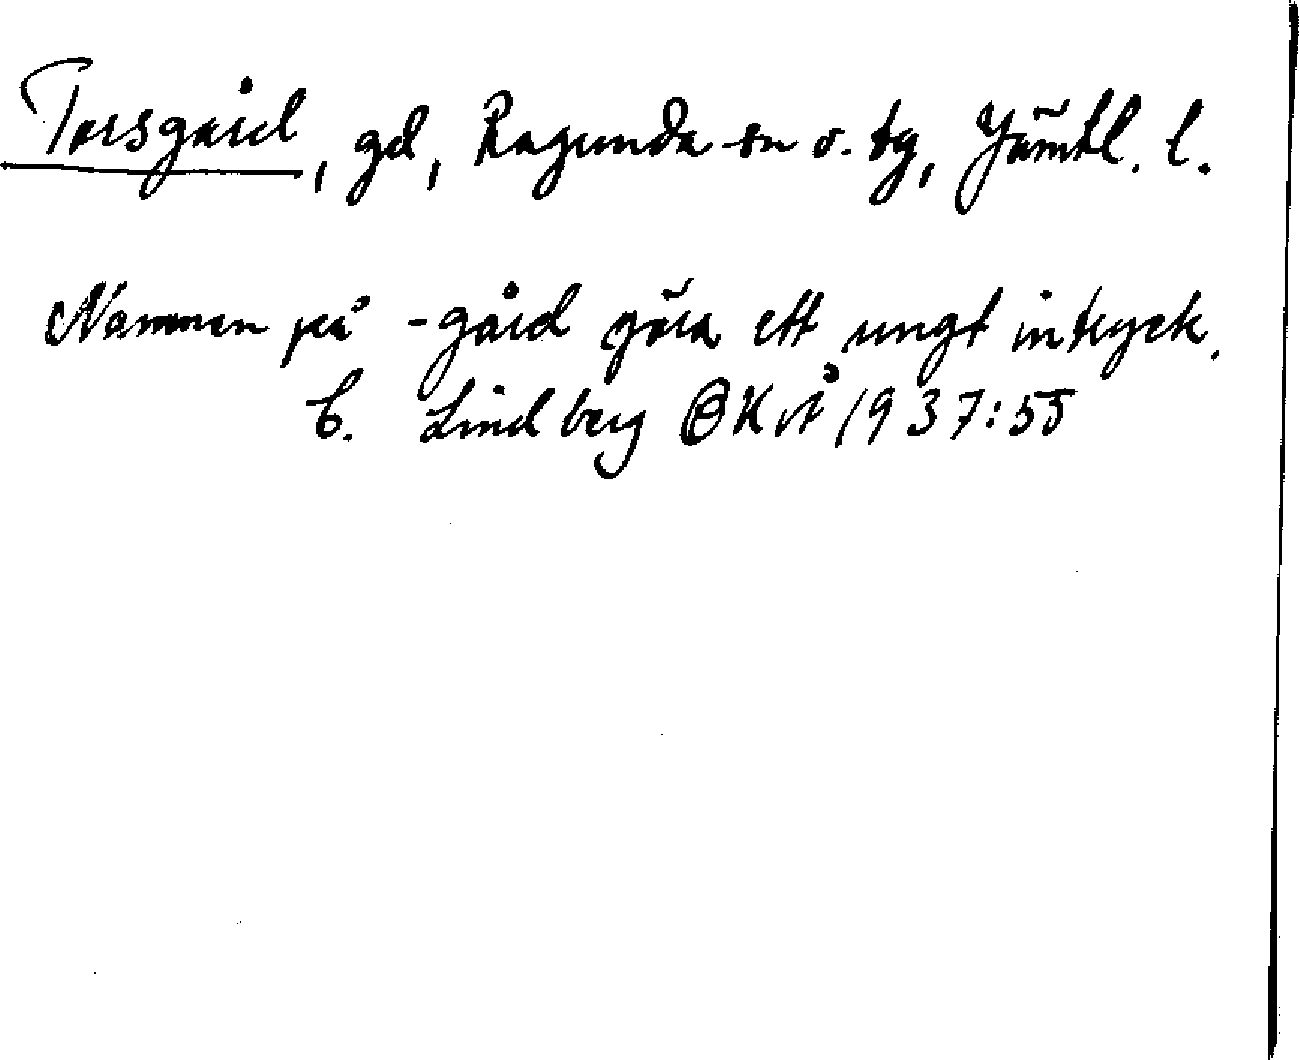 Torsgård, gd, Ragunda sn o. tg, Jämtl. l.
Namnen på -gård göra ett ungt intryck.
C. Lindberg OKvÅ 1937:55